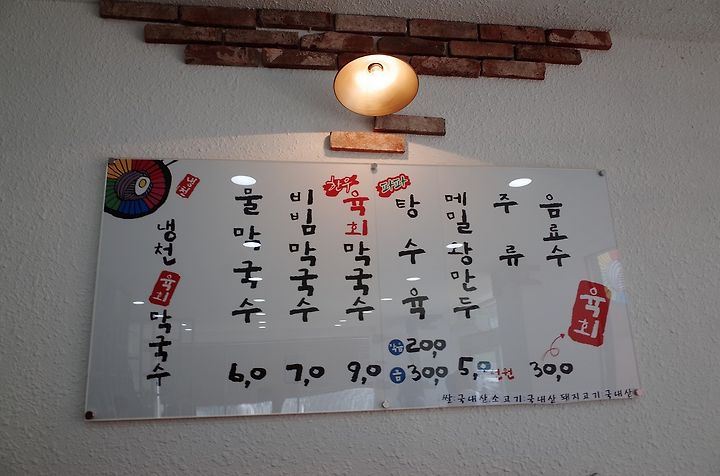 냉천 육회 막국수
물막국수
6,0
비빔막국수
7,0
한우
육회막국수
9,0
파파
탕수육
20,0
30,0
메밀왕만두
5,0
주류
음료수
육회
30,0
쌀:국내산,소고기:국내산 돼지고기 국내산